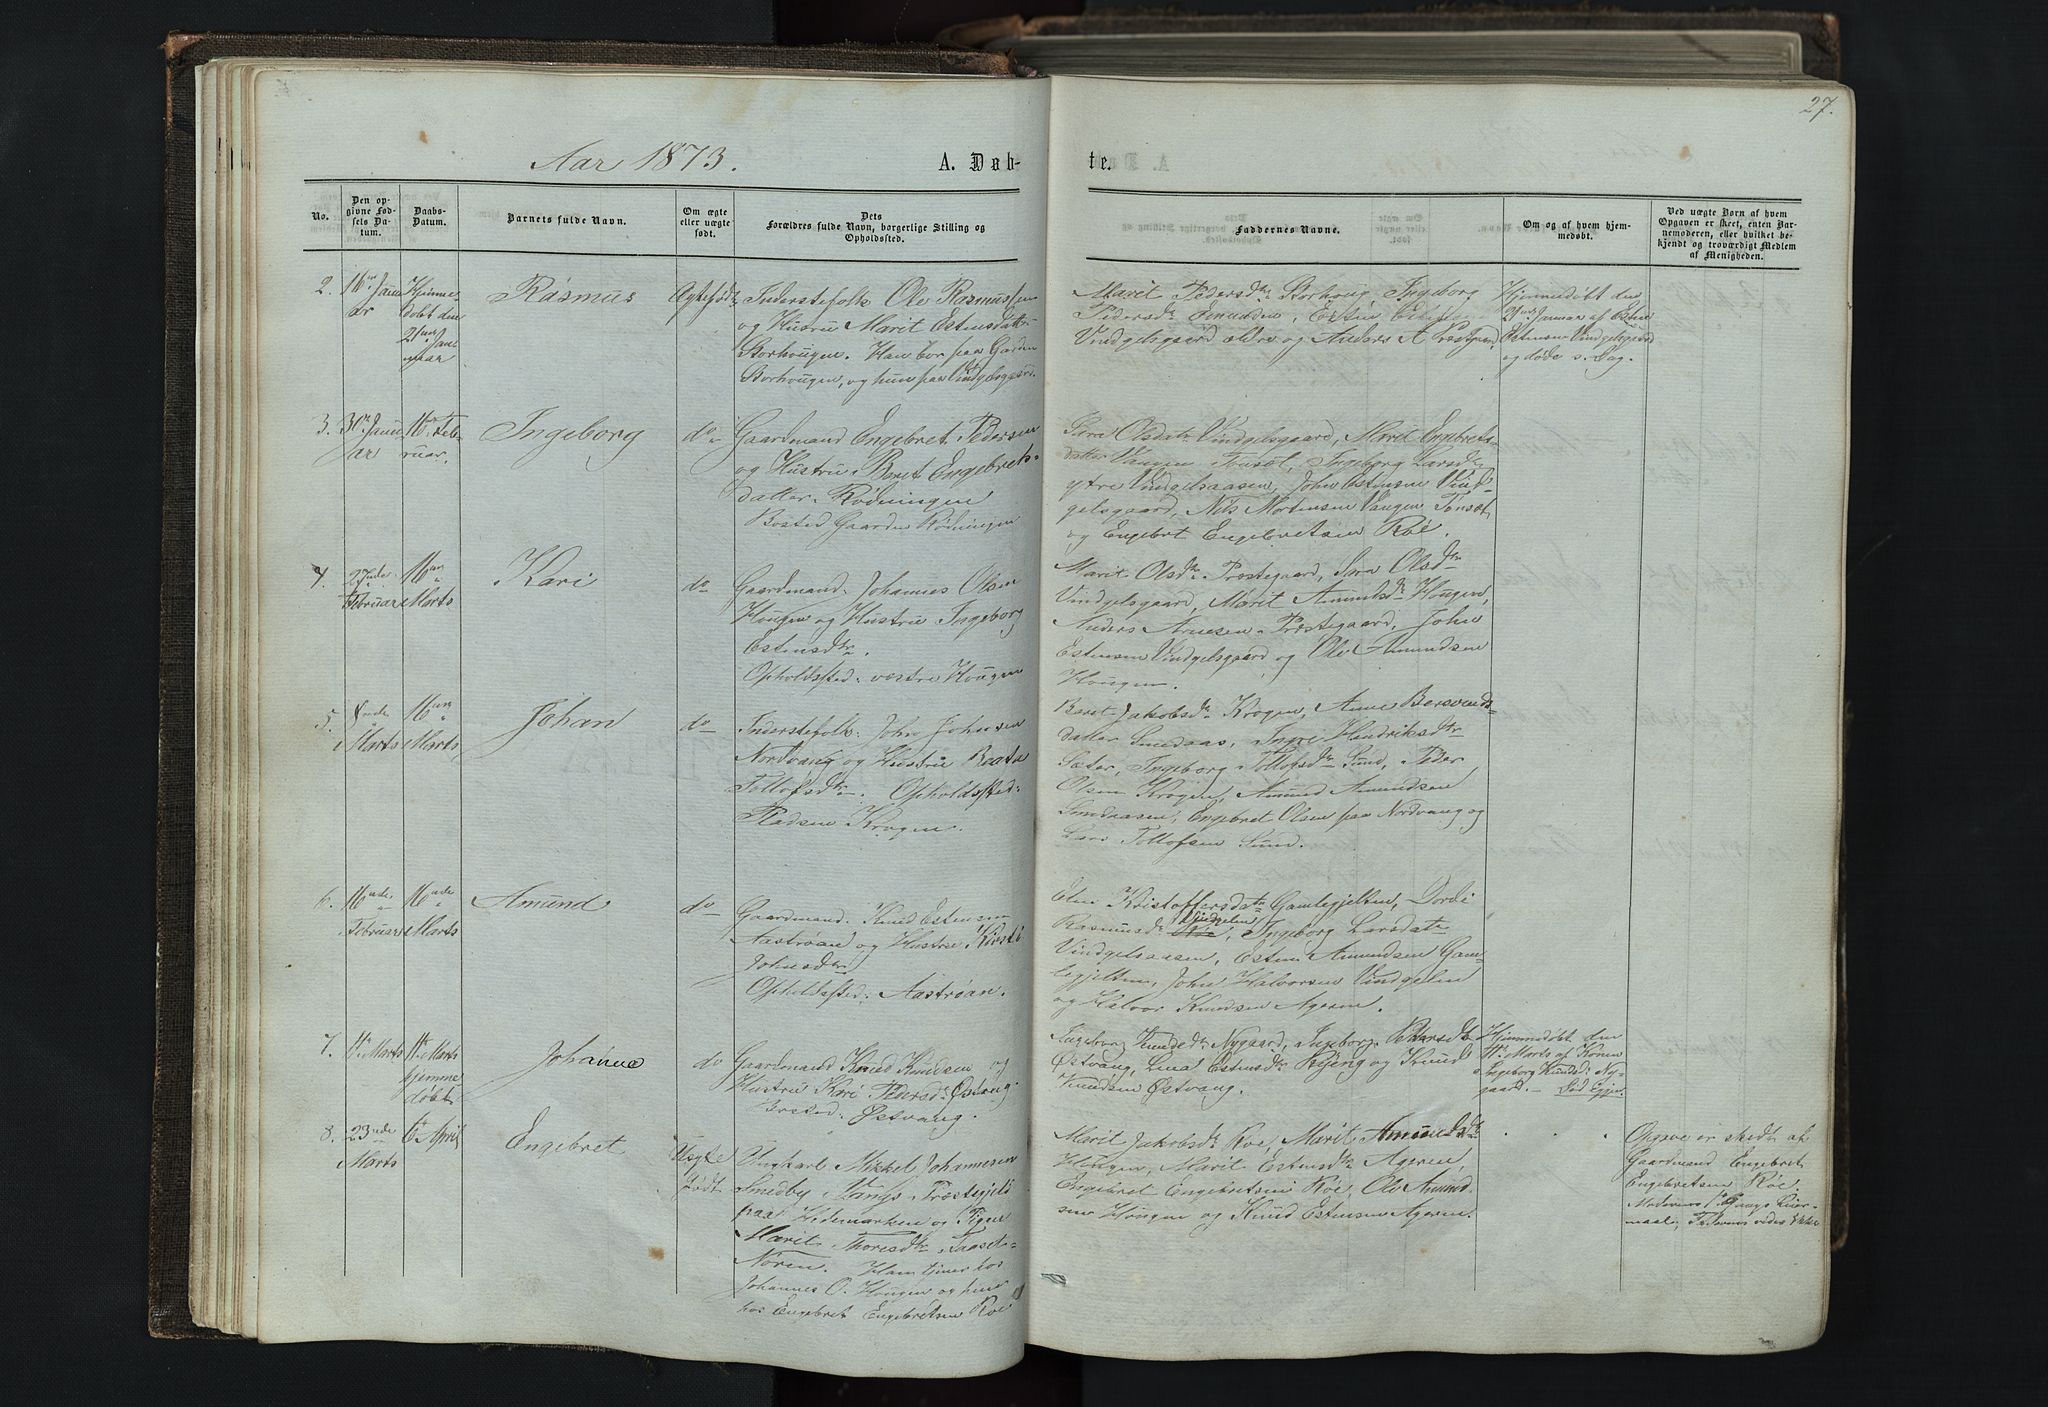 27.
Aar 1873.
A. Døb-
te.
No.
Den op-
givne Fød-
sels Da-
tum.
Daabs-
Datum.
Barnets fulde Navn.
Om ægte
eller uægte
født.
Dets
Forældres fulde Navn, borgerlige Stilling og
Opholdssted.
Faddernes Navne.
Om og af hvem hjem-
medøbt.
Ved uægte Børn af hvem
Opgaven er skeet, enten Bar-
nemoderen, eller hvilket be-
kjendt og troværdigt Medlem
af Menigheden.
2.
16de Janu
ar
Hjemme-
døbt den
21nde Jan-
uar
Rasmus
Ægtefødt
Inderstefolk Ole Rasmussen
og Hustru Marit Estensdatter
Storhougen. Han bor paa Gaarden
Storhougen, og hun paa Vindgelsgaard.
Marit Pedersdtr Storhoug, Ingeborg
Pedersdtr Smedden, Esten
Vindgelsgaard ældre og Anders A Præstgaard.
Hjemmedøbt den
21nde Januar af Esten
Estensen Vindgelsgaard
og døde s. Dag.
3.
30te Janu
ar
16de Feb-
ruar.
Ingeborg
do
Gaardmand Engebret Pedersen
og Hustru Beret Engebrets-
datter Rødningen
Bosted Gaarden Rødningen
Sara Olsdatr Vindgelsgaard, Marit Engebrets-
datter Vangen Tønset, Ingeborg Larsdtr
ytre Vindgelsaasen, John Estensen Vind-
gelsgaard, Nils Mortensen Vangen Tønset
og Engebret Engebretsen Røe.
4.
27nde
Februar
16nde
Marts
Kari
do
Gaardmand: Johannes Olsen
Hougen og Hustru Ingeborg
Estensdtr.
Opholdssted: vestre Hougen
Marit Olsdtr Præstegaard, Sara Olsdtr
Vindgelsgaard, Marit Amundsdtr Hougen,
Anders Arnesen Præstegaard, John
Estensen Vindgelsgaard og Ole Amundsen
Hougen.
5.
Marts
16nde
Marts
Johan
do
Inderstefolk: John Johnsen
Nordvang og Hustru Beata
Tollofsdtr. Opholdssted:
Pladsen Krogen.
Beret Jakobsdtr Krogen, Anne Bersvends-
datter Smedaas, Inger Hendriksdtr
Sæter, Ingeborg Tollofsdtr Sund, Peder
Olsen Krogen, Amund Amundsen
Smedaasen, Engebret Olsen paa Nordvang og
Lars Tollofsen Sund.
6.
16nde
Februar
16nde
Marts
Amund
do
Gaardmand: Knud Estensen
Aastrøan og Hustru Kirsti
Johnsdtr
Opholdssted: Aastrøan.
Elen Kristoffersdatr Gamlegjelten, Dordi
Rasmusdr Vindgelen, Ingeborg Larsdatr
Vindgelsaasen, Esten Amundsen Gam-
legjelten, John Halvorsen Vindgelen
og Halvor Knudsen Ageren.
7.
11te Marts
11te Marts
hjemme
døbt.
Johanna
do
Gaardmand Knud Knudsen og
Hustru Kari Pedersdtr Østvang.
Bosted: Østvang.
Ingeborg Knudsdtr Nygaard, Ingeborg Pedersdtr
Østvang, Estensdtr Ryeng og Knud
Knudsen Østvang.
Hjemmedøbt den
11te Marts af Konen
Ingeborg Knudsd: Ny-
gaard.
8.
23nde
Marts
6te April
Engebret
Uægte
født
Ungkarl Mikkel Johannesen
Smedby Vangs Præstegjeld
paa Hedemarken og Pigen
Marit Thoresdtr Faaset-
Nøren. Han tjener hos
Johannes O. Hougen og hun
hos Engebret Engebretsen Røe
Marit Jakobsdtr Røe, Marit Amundsdtr
Hougen, Marit Estensdtr Ageren,
Engebret Engebretsen Røe, Ole Amund-
sen Hougen og Knud Estensen Ageren.
Opgave er skedt af
Gaardmand Engebret
Engebretsen Røe.
Moderens 1ste Gangs Leier-
maal, Faderens vides ikke